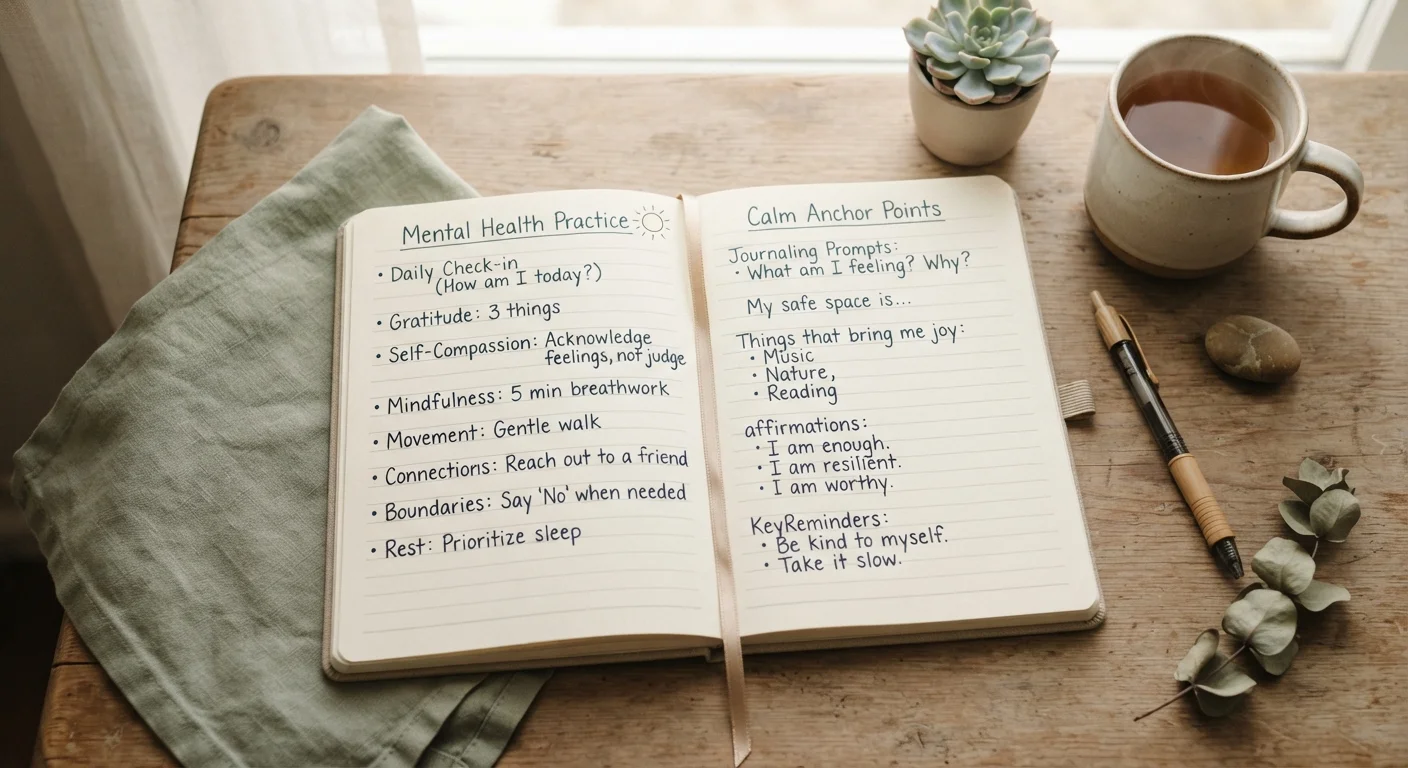 Mental Health Practice
• Daily Check-in
(How am I today?)
• Gratitude: 3 things
• Self-Compassion: Acknowledge
feelings, not judge
• Mindfulness: 5 min breathwork
• Movement: Gentle walk
• Connections: Reach out to a friend
• Boundaries: Say 'No' when needed
• Rest: Prioritize sleep
Calm Anchor Points
Journaling Prompts:
• What am I feeling? Why?
My safe space is...
Things that bring me joy:
• Music
• Nature,
• Reading
affirmations:
• I am enough.
• I am resilient.
• I am worthy.
KeyReminders:
• Be kind to myself.
• Take it slow.